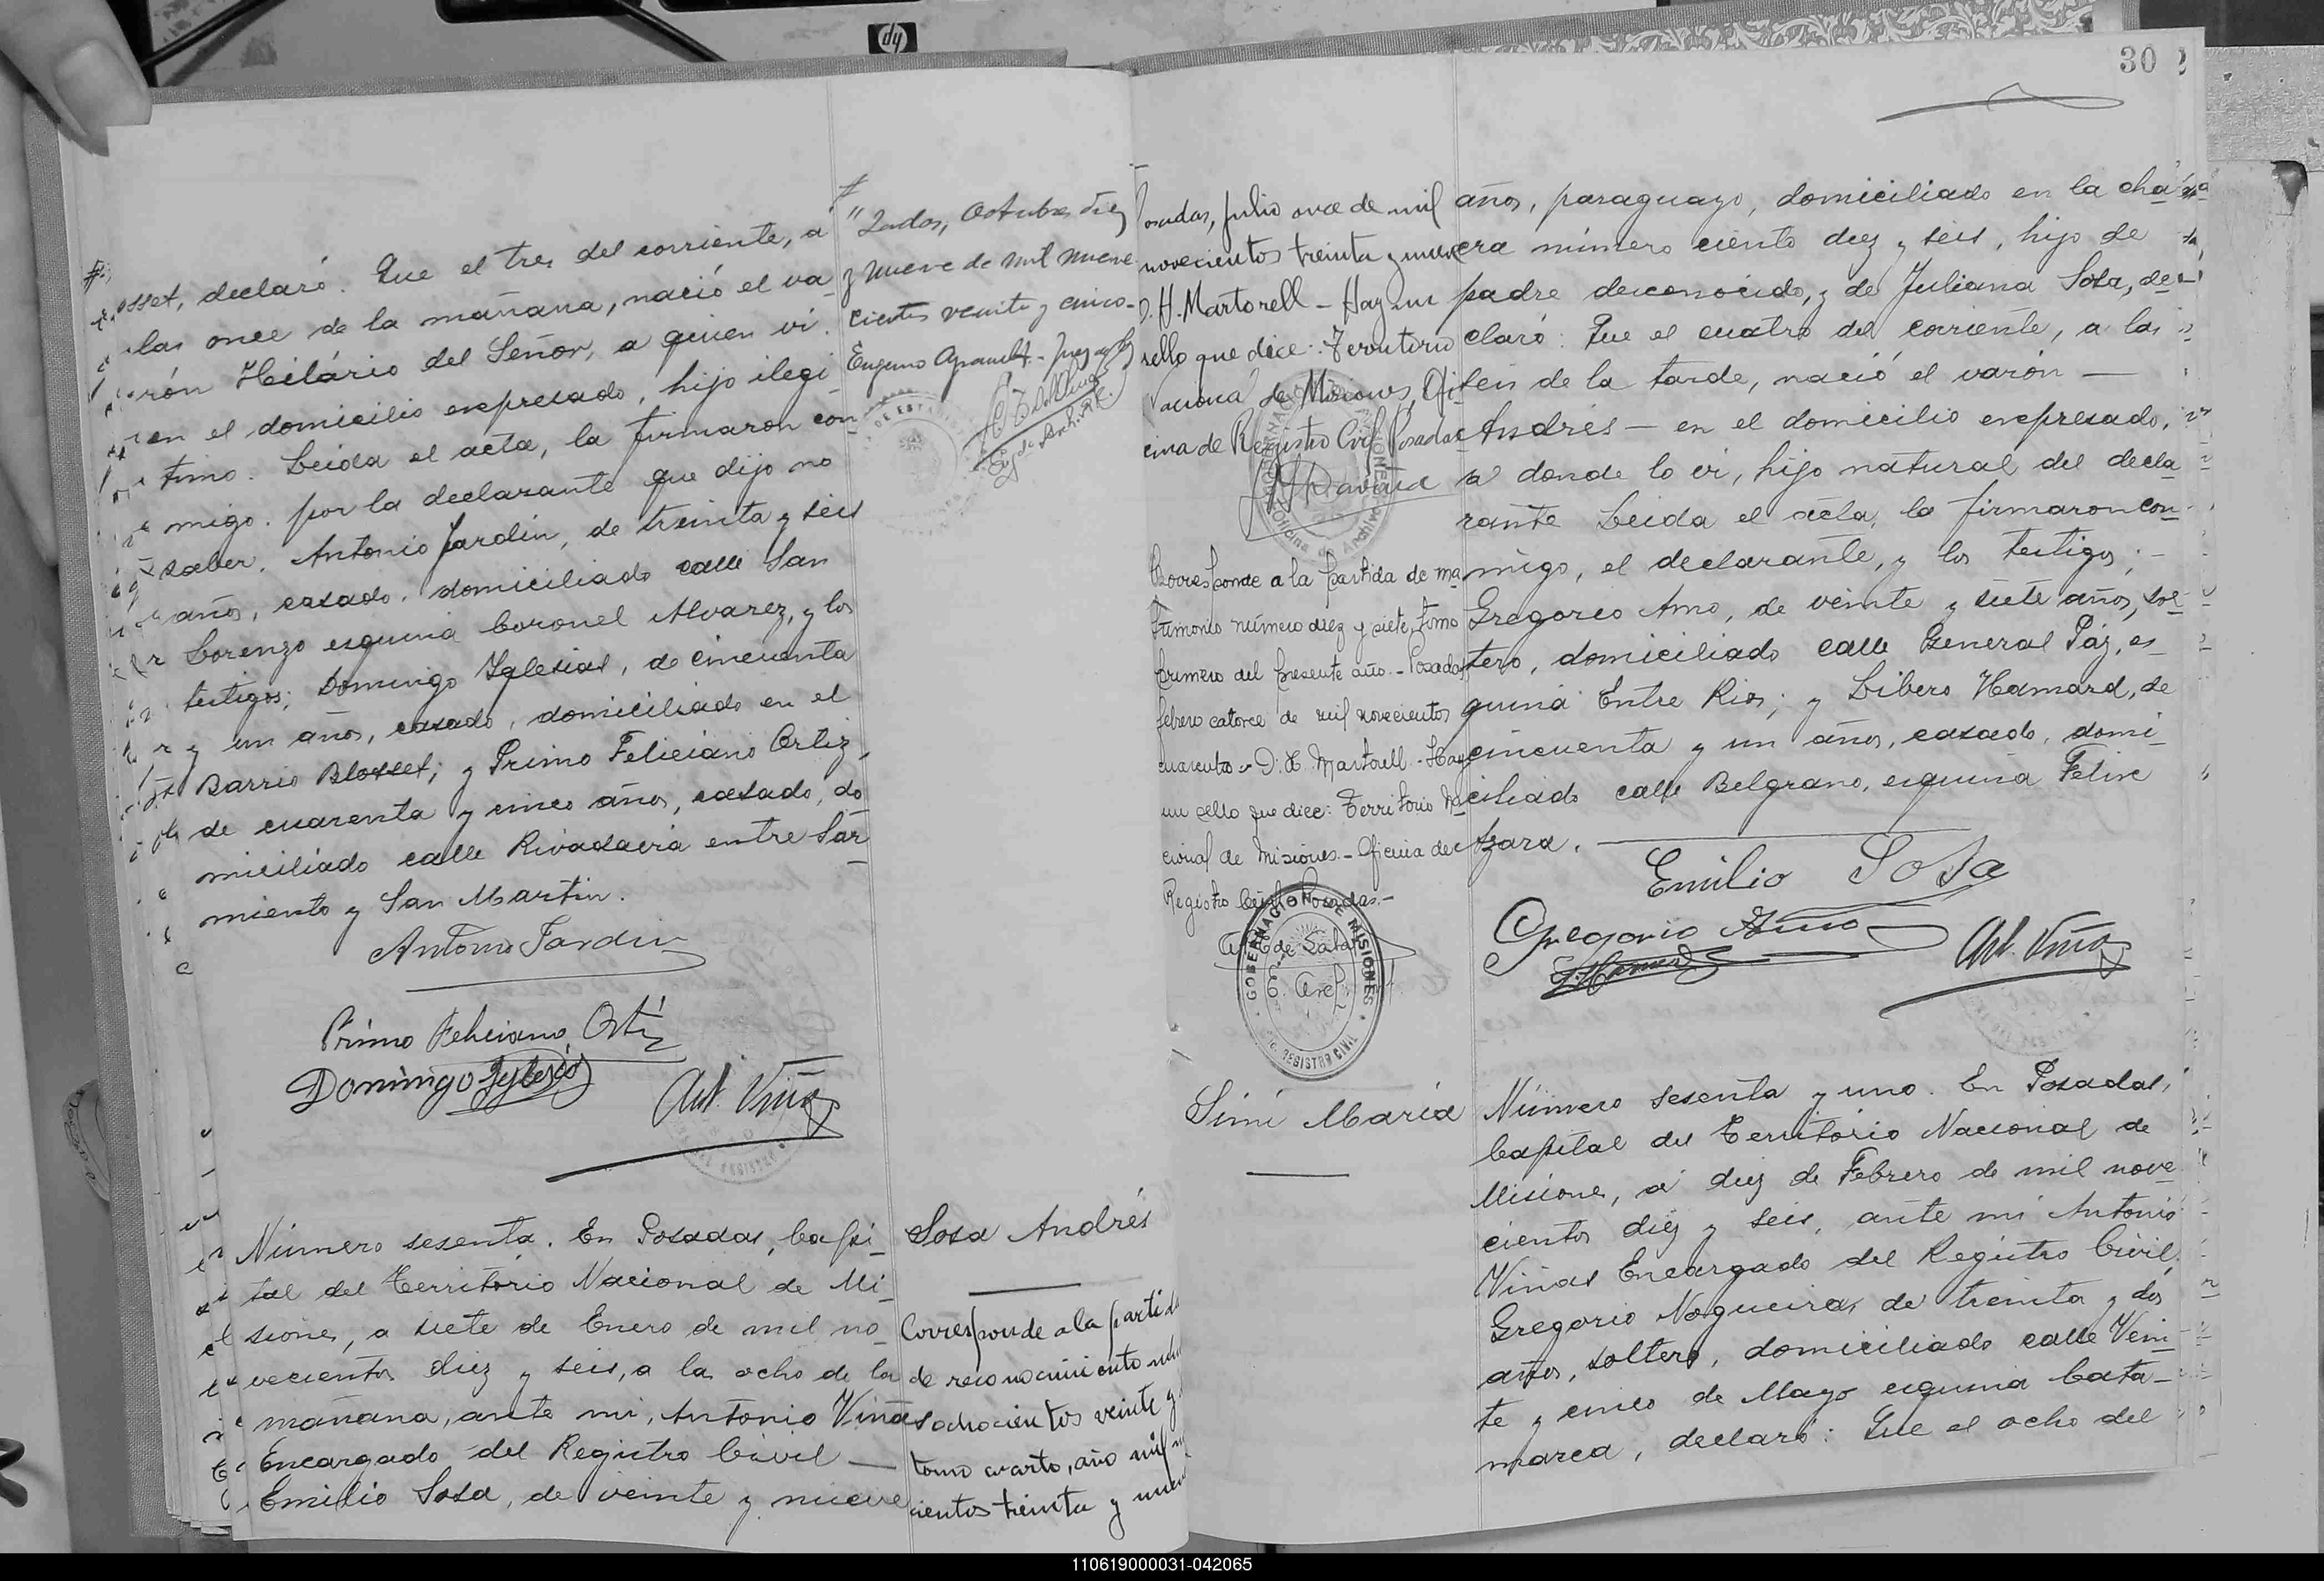 hp
30
osset, declaró. Que el tres del corriente, a
las once de la mañana, nació el va
rón Hilário del Señor, a quien vi
en el domicilio expresado, hijo ilegi
timo. Leida el acta, la firmaron con
migo. por la declarante que dijo no
saber, Antonio Jardin, de treinta y seis
años, casado, domiciliado calle San
Lorenzo esquina Coronel Alvarez, y los
testigos; Domingo Yglesias, de cincuenta
y un años, casado, domiciliado en el
Barrio Blosset; y Primo Feliciano Ortiz,
de cuarenta y cinco años, casado, do
miciliado calle Rivadavia entre Sar
miento y San Martin.
Antonio Jardin
Primo Feliciano Ortiz
Domingo Yglesias
Ant. Viñas
Número sesenta. En Posadas, Capi_
tal del Território Nacional de Mi_
siones, a siete de Enero de mil no_
vecientos diez y seis, a las ocho de la
mañana, ante mi, Antonio Viñas
Encargado del Registro Civil —
Emilio Sosa, de veinte y nueve
Octubre diez
y nueve de mil nueve
cientos veinte y cinco-
Sosa Andrés
Corresponde a la partida
de reconocimiento
ochocientos veinte y
tomo cuarto, año mil
cientos treinta y
Posadas, Julio once de mil
novecientos treinta y nueve
D. H. Martorell - Hay un
sello que dice: Territorio
Nacional de Misiones, Ofi
cina de Registro Civil Posadas
Corresponde a la partida de ma
trimonio número diez y siete, tomo
primero del presente año.- Posadas
febrero catorce de mil novecientos
cuarenta.- D. H. Martorell - Hay
un sello que dice: Territorio Na
cional de Misiones.- Oficina del
Registro Civil Posadas.-
GOBERNACION DE MISIONES
REGISTRO CIVIL
años, paraguayo, domiciliado en la chá
cra número ciento diez y seis, hijo de
padre desconocido, y de Juliana Sosa, de
claró: Que el cuatro del corriente, a las
seis de la tarde, nació el varón —
Andrés — en el domicilio expresado,
a donde lo vi, hijo natural del decla
rante Leida el acta, la firmaron con
migo, el declarante, y los testigos;
Gregorio Amo, de veinte y siete años, sol
tero, domiciliado calle General Páz, es_
quina Entre Rios; y Libero Hamard, de
cincuenta y un años, casado, domi_
ciliado calle Belgrano, esquina Felix
Azara.
Emilio Sosa
Gregorio Amo
Ant. Viñas
Simi María
Número sesenta y uno. En Posadas,
Capital del Território Nacional de
Misiones, a diez de Febrero de mil nove
cientos diez y seis, ante mi Antonio
Viñas Encargado del Registro Civil,
Gregorio Nogueira, de treinta y dos
años, soltero, domiciliado calle Vein_
te y cinco de Mayo esquina Cata_
marca, declaró: Que el ocho del
110619000031-042065